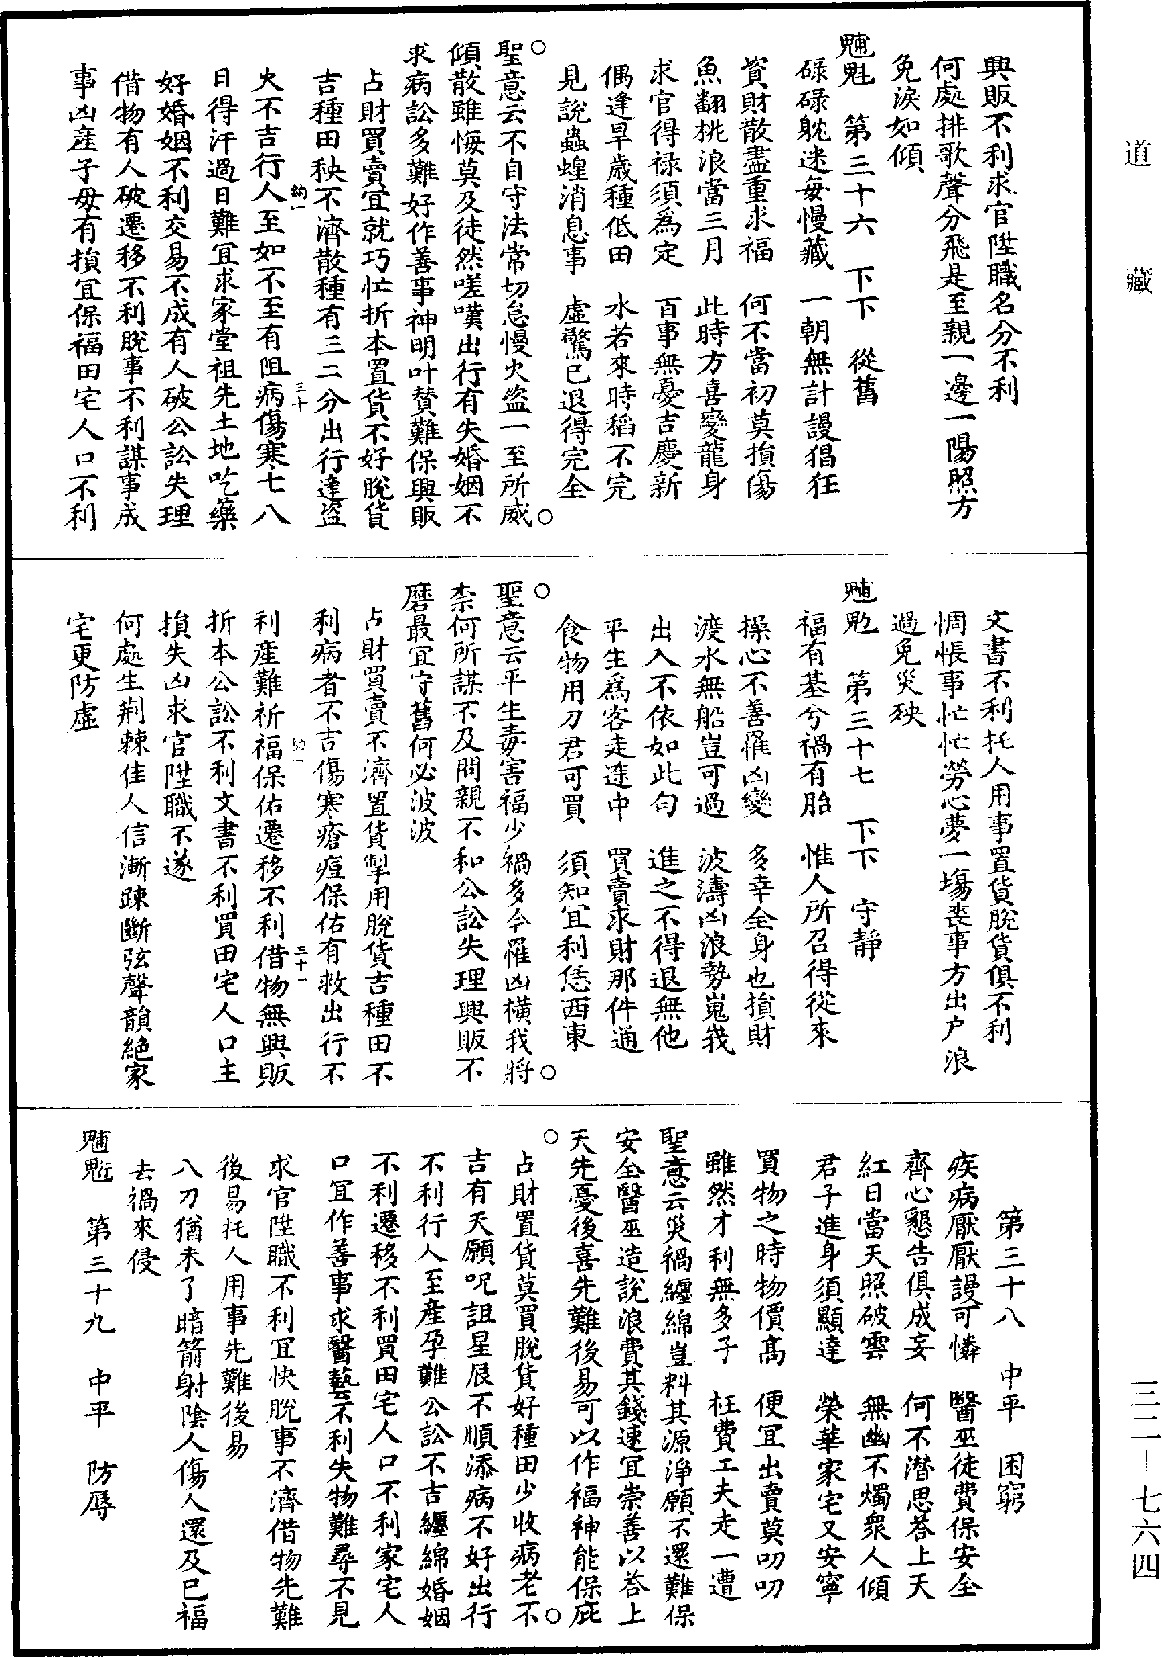 道藏
三二—七六四
興販不利求官陞職名分不利
何處排歌聲分飛是至親一邊一陽照方
免淚如傾
第三十六 下下 從舊
碌碌躭迷每慢藏 一朝無計謾猖狂
資財散盡重求福 何不當初莫損傷
魚翻桃浪當三月 此時方喜變龍身
求官得祿須為定 百事無憂吉慶新
偶逢旱歲種低田 水若來時稻不完
見說蟲蝗消息事 虛驚已退得完全
聖意云不自守法常切怠慢火盜一至所威
傾散雖悔莫及徒然嗟嘆出行有失婚姻不
求病訟多難好作善事神明叶贊難保興販
占財買賣宜就巧忙折本置貨不好脫貨
吉種田秧不濟散種有三二分出行逢盜
火不吉行人至如不至有阻病傷寒七八
日得汗過日難宜求家堂祖先土地吃藥
好婚姻不利交易不成有人破公訟失理
借物有人破遷移不利脫事不利謀事成
事凶產子母有損宜保福田宅人口不利
三十
文書不利托人用事置貨脫貨俱不利
惆悵事忙忙勞心夢一場喪事方出户浪
過免災殃
第三十七 下下 守靜
福有基兮禍有胎 惟人所召得從來
操心不善罹凶變 多幸全身也損財
渡水無船豈可過 波濤凶浪勢嵬峩
出入不依如此句 進之不得退無他
平生為客走途中 買賣求財那件通
食物用刀君可買 須知宜利恁西東
聖意云平生毒害福少禍多今罹凶橫我將
柰何所謀不及問親不和公訟失理興販不
磨最宜守舊何必波波
占財買賣不濟置貨掣用脫貨吉種田不
利病者不吉傷寒瘡痘保佑有救出行不
利產難祈福保佑遷移不利借物無興販
折本公訟不利文書不利買田宅人口主
損失凶求官陞職不遂
何處生荆棘佳人信漸踈斷弦聲韻絕家
宅更防虛
三十一
第三十八 中平 困窮
疾病厭厭謾可憐 醫巫徒費保安全
齊心懇告俱成妄 何不潛思荅上天
紅日當天照破雲 無幽不燭衆人傾
君子進身須顯達 榮華家宅又安寧
買物之時物價高 便宜出賣莫叨叨
雖然才利無多子 枉費工夫走一遭
聖意云災禍纏綿豈料其源淨願不還難保
安全醫巫造說浪費其錢速宜崇善以荅上
天先憂後喜先難後易可以作福神能保庇
占財置貨莫買脫貨好種田少收病老不
吉有天願呪詛星辰不順添病不好出行
不利行人至產孕難公訟不吉纏綿婚姻
不利遷移不利買田宅人口不利家宅人
口宜作善事求醫藝不利失物難尋不見
求官陞職不利宜快脫事不濟借物先難
後易托人用事先難後易
八刀猶未了暗箭射陰人傷人還及已福
去禍來侵
第三十九 中平 防辱